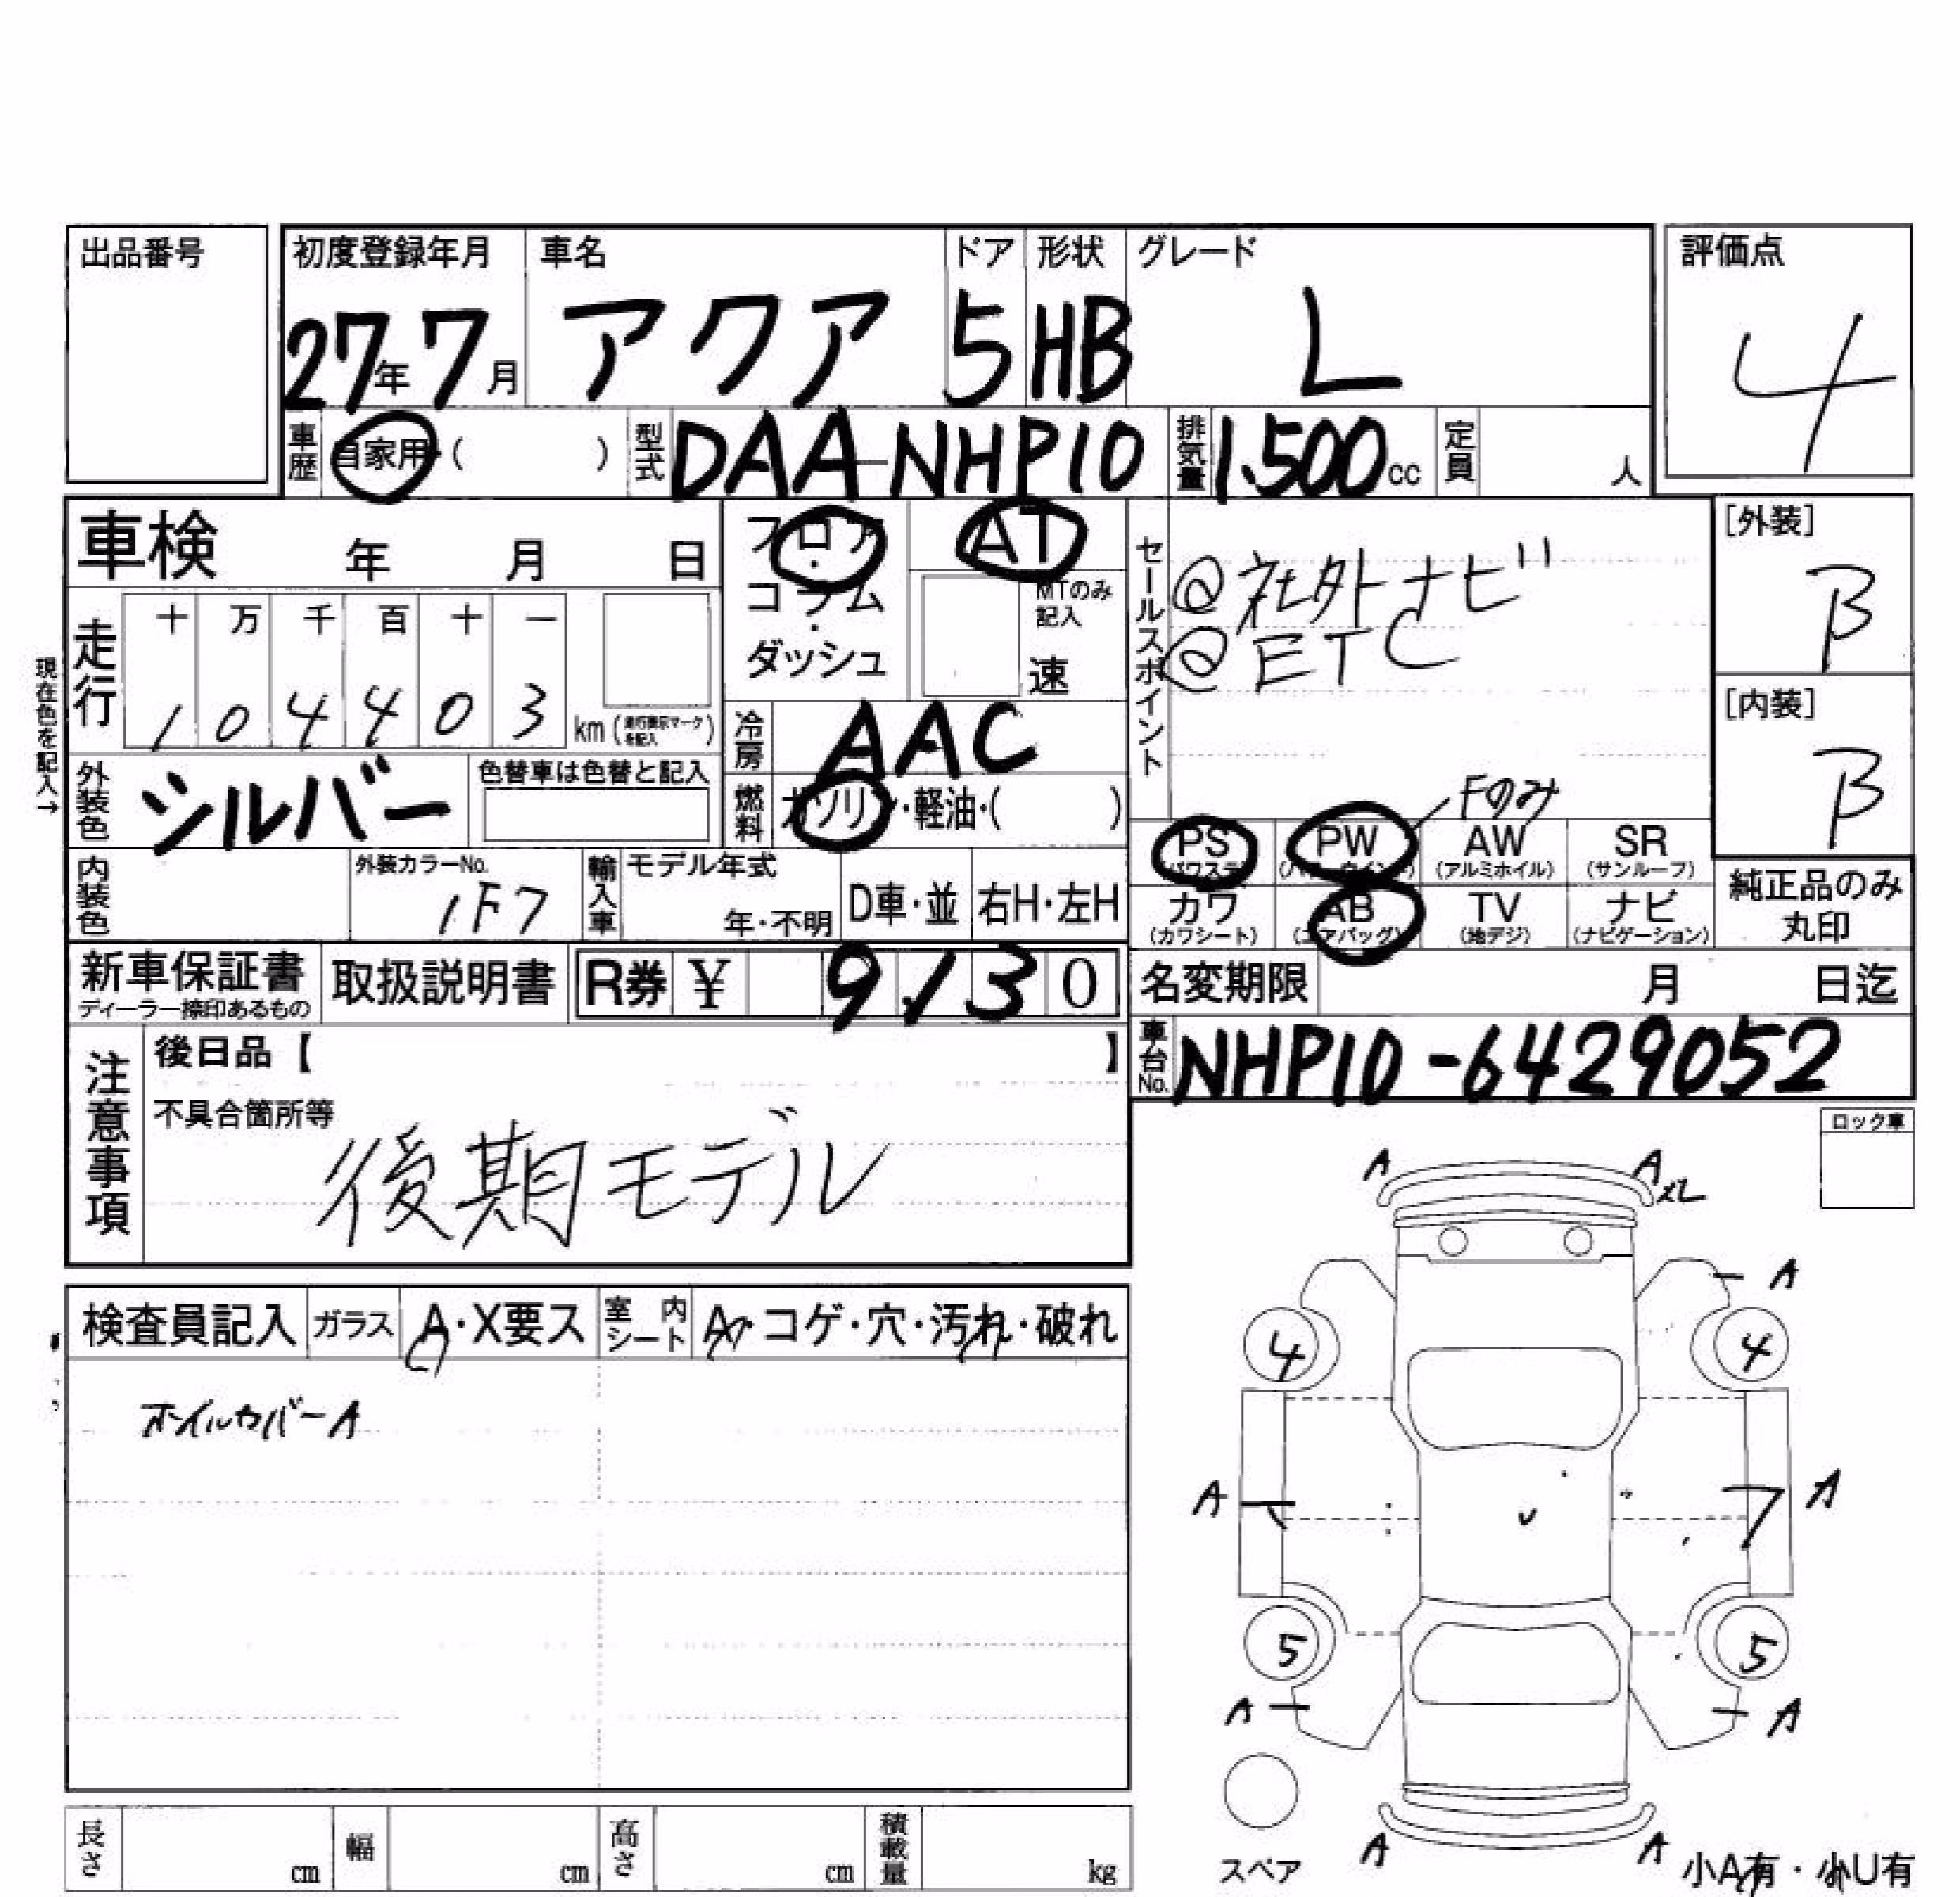 出品番号
初度登録年月 車名 ドア 形状 グレード 評価点
27年7月 アクア 5 HB L 4
車歴 自家用・( ) 型式 DAA-NHP10 排気量 1.500cc 定員 人
車検 年 月 日
フロア・コラム・ダッシュ
AT
MTのみ記入
速
セールスポイント
@社外ナビ
@ETC
[外装]
B
[内装]
B
現在色を記入→
走行 十 万 千 百 十 一
1 0 4 4 0 3 km(走行表示マークを記入)
冷房 AAC
外装色 シルバー 色替車は色替と記入
燃料 ガソリン・軽油・( )
Fのみ
PS (パワステ) PW (パワーウインド) AW (アルミホイル) SR (サンルーフ)
カワ (カワシート) AB (エアバッグ) TV (地デジ) ナビ (ナビゲーション)
純正品のみ
丸印
内装色 外装カラーNo. 1F7
輸入車 モデル年式 年・不明 D車・並 右H・左H
新車保証書 取扱説明書 R券 ¥ 9,130
ディーラー捺印あるもの
名変期限 月 日迄
車台No. NHP10-6429052
注意事項
後日品【 】
不具合箇所等
後期モデル
ロック車
検査員記入 ガラス A・X要ス 室内シート A・コゲ・穴・汚れ・破れ
ホイルカバーA
A A
メL
A
4 4
A A
5 5
A A
スペア
A A
小A有・小U有
長さ cm 幅 cm 高さ cm 積載量 kg